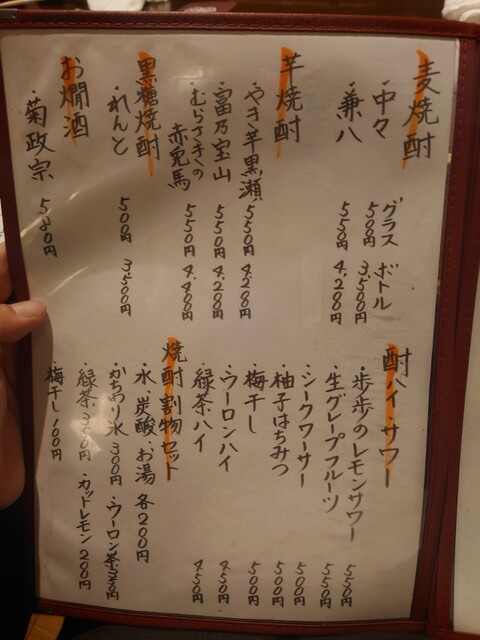 麦焼酎 グラス ボトル
・中々 500円 3,500円
・兼八 550円 4,200円
芋焼酎
・やき芋黒瀬 550円 4,200円
・富乃宝山 550円 4,200円
・むらさきの
赤兎馬 550円 4,400円
黒糖焼酎
・れんと 500円 3,500円
お燗酒
・菊政宗 580円
酎ハイ・サワー
・歩歩のレモンサワー 550円
・生グレープフルーツ 550円
・シークワーサー 500円
・柚子はちみつ 500円
・梅干し 500円
・ウーロンハイ 450円
・緑茶ハイ 450円
焼酎割物セット
・水・炭酸・お湯 各200円
・かちわり氷 300円 ・ウーロン茶300円
・緑茶300円 ・カットレモン200円
・梅干し100円